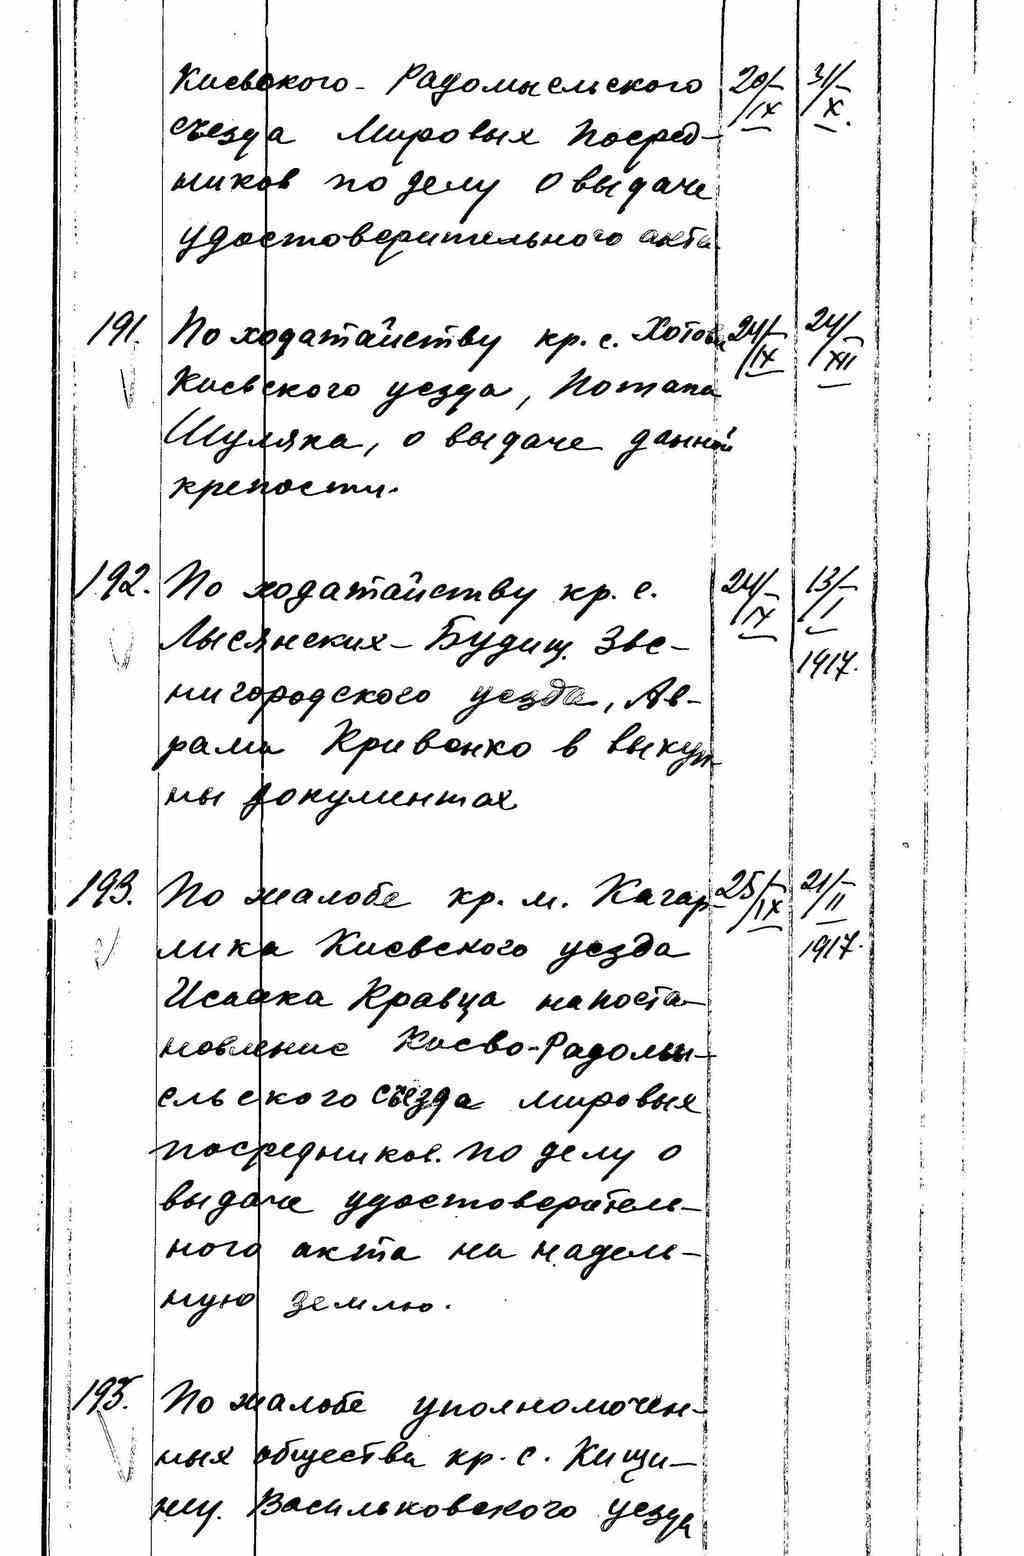 Киевского-Радомысльского 20/IX 31/X.
съезда Мировых Посред-
ников по делу о выдаче
удостоверительного акта
191. По ходатайству кр. с. Хотова 24/IX 24/XII
Киевского уезда, Потапа
Шуляка, о выдаче данной
крепости.
192. По ходатайству кр. с. 24/IX 13/I
Лысянских-Будищ. Зве- 1917.
нигородского уезда, Ав-
рама Кривонко в выкуп-
ны документах
193. По жалобе кр. м. Кагар- 25/IX 21/II
лика Киевского уезда 1917.
Исаака Кравца на поста-
новление Киево-Радомы-
сльского съезда мировых
посредников. по делу о
выдаче удостоверитель-
ного акта на надель-
ную землю.
195. По жалобе уполномочен-
ных общества кр. с. Кищи-
Васильковского уезда